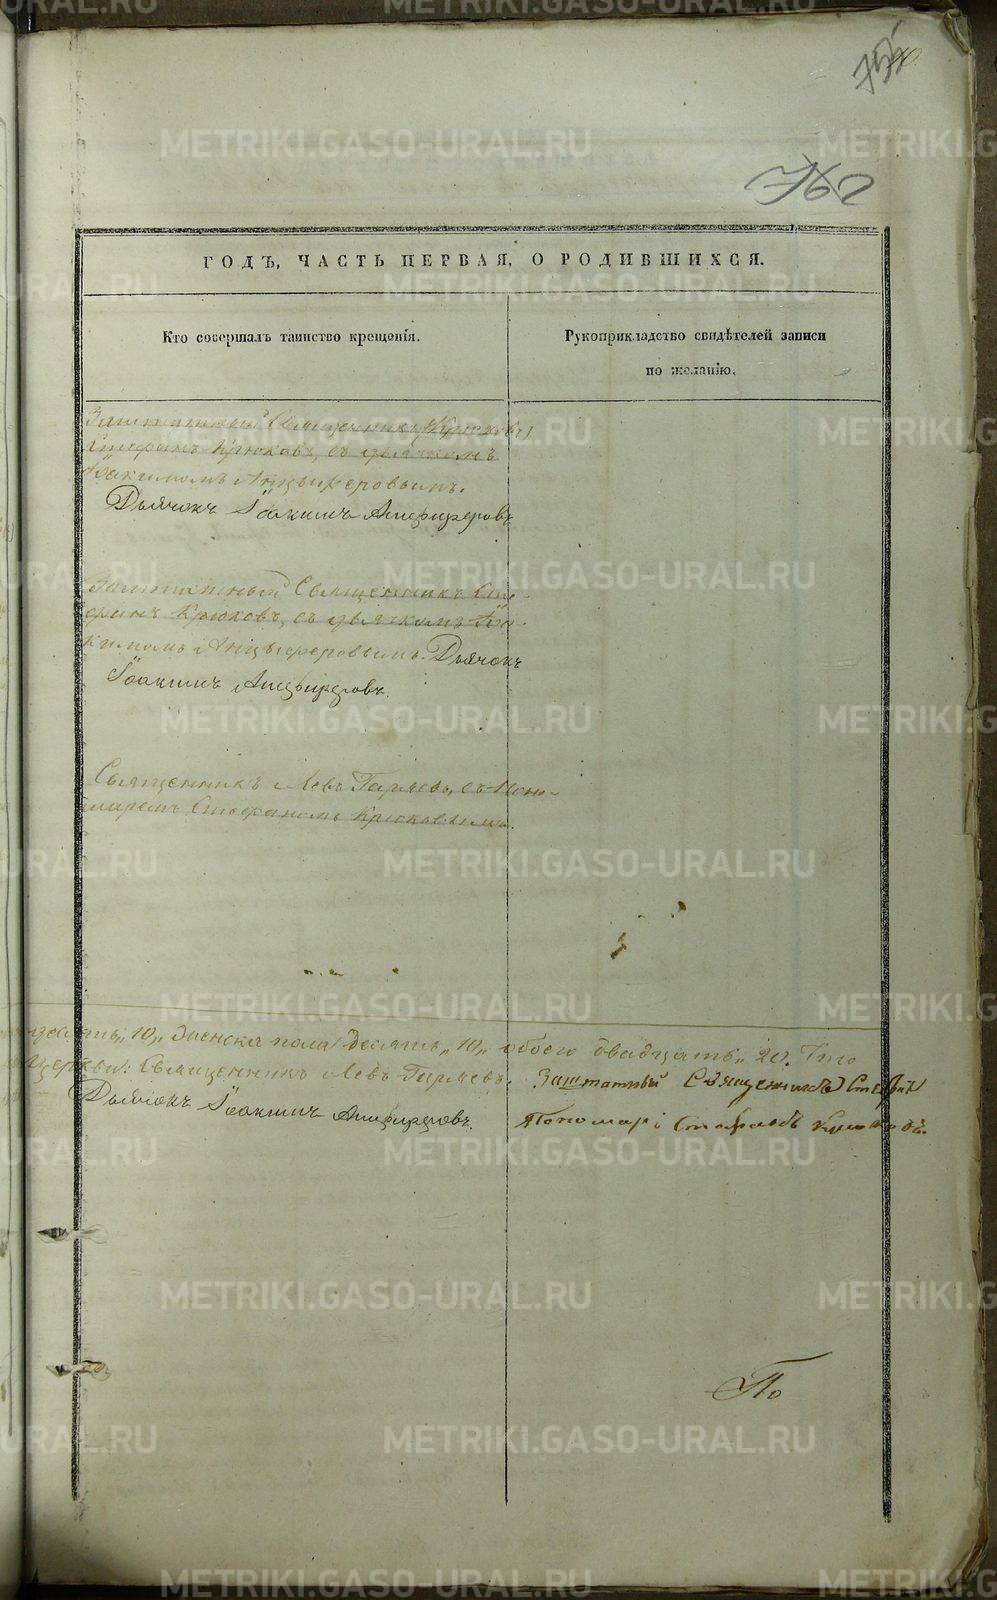 762
ГОДЪ, ЧАСТЬ ПЕРВАЯ, О РОДИВШИХСЯ.
Кто совершалъ таинство крещенія.
Рукоприкладство свидѣтелей записи
по желанію.
Заштатный Священникъ
Стефанъ Крюковъ, съ дьячкомъ
Іоакимомъ Анцыферовымъ.
Дьячокъ Іоакимъ Анцыферовъ
Заштатный Священникъ Сте-
фанъ Крюковъ, съ дьячкомъ Іоа-
кимомъ Анцыферовымъ. Дьячокъ
Іоакимъ Анцыферовъ.
Священникъ Левъ Гаряевъ, съ Поно-
маремъ Стефаномъ Крюковымъ.
десять „10„ Женска пола десять „10„ обоего двадцать „20. Что
церкви: Священникъ Левъ Гаряевъ. Заштатный Священникъ Стефан
Дьячокъ Іоакимъ Анцыферовъ. Пономарь Стефанъ Крюковъ.
По
METRIKI.GASO-URAL.RU